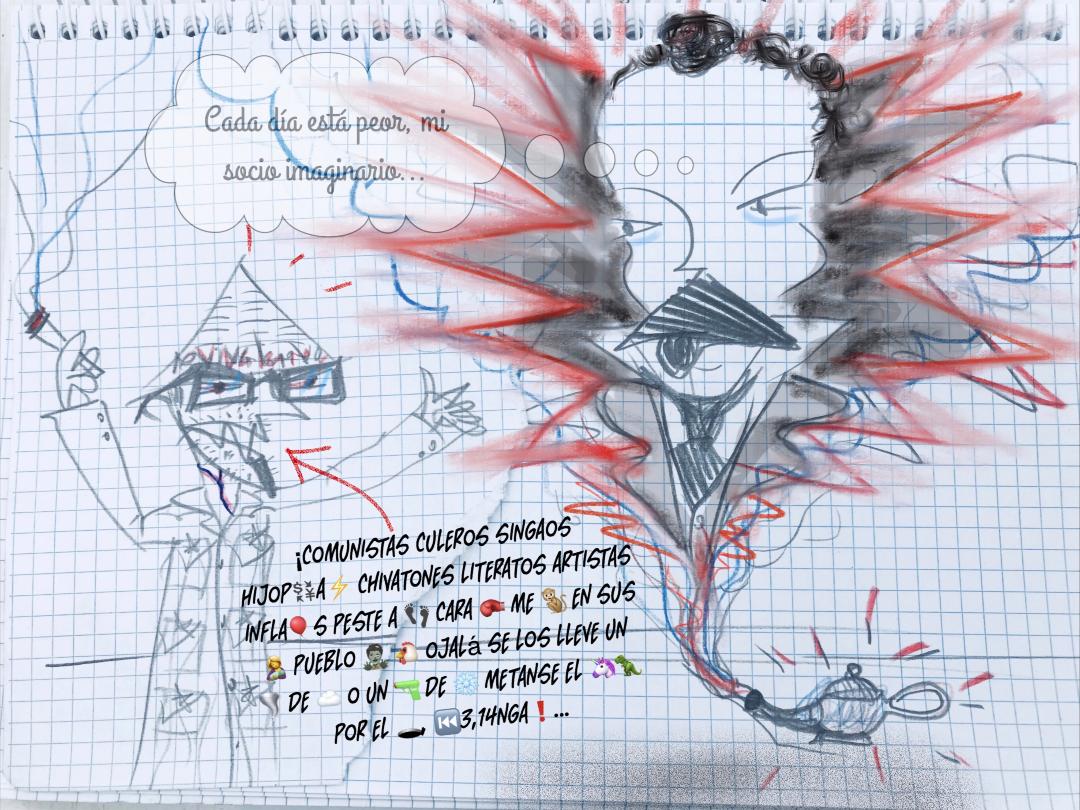 Cada día está peor, mi
socio imaginario...
¡COMUNISTAS CULEROS SINGAOS
HIJOP💱A⚡ CHIVATONES LITERATOS ARTISTAS
INFLA🎈S PESTE A 👣 CARA 🥊 ME 🐒 EN SUS
🤱 PUEBLO 🧟 🐔 OJALá SE LOS LLEVE UN
🌪️ DE ☁️ O UN 🔫 DE ❄️ METANSE EL 🦄🦖
POR EL 🕳️ ⏮️3,14NGA❗...